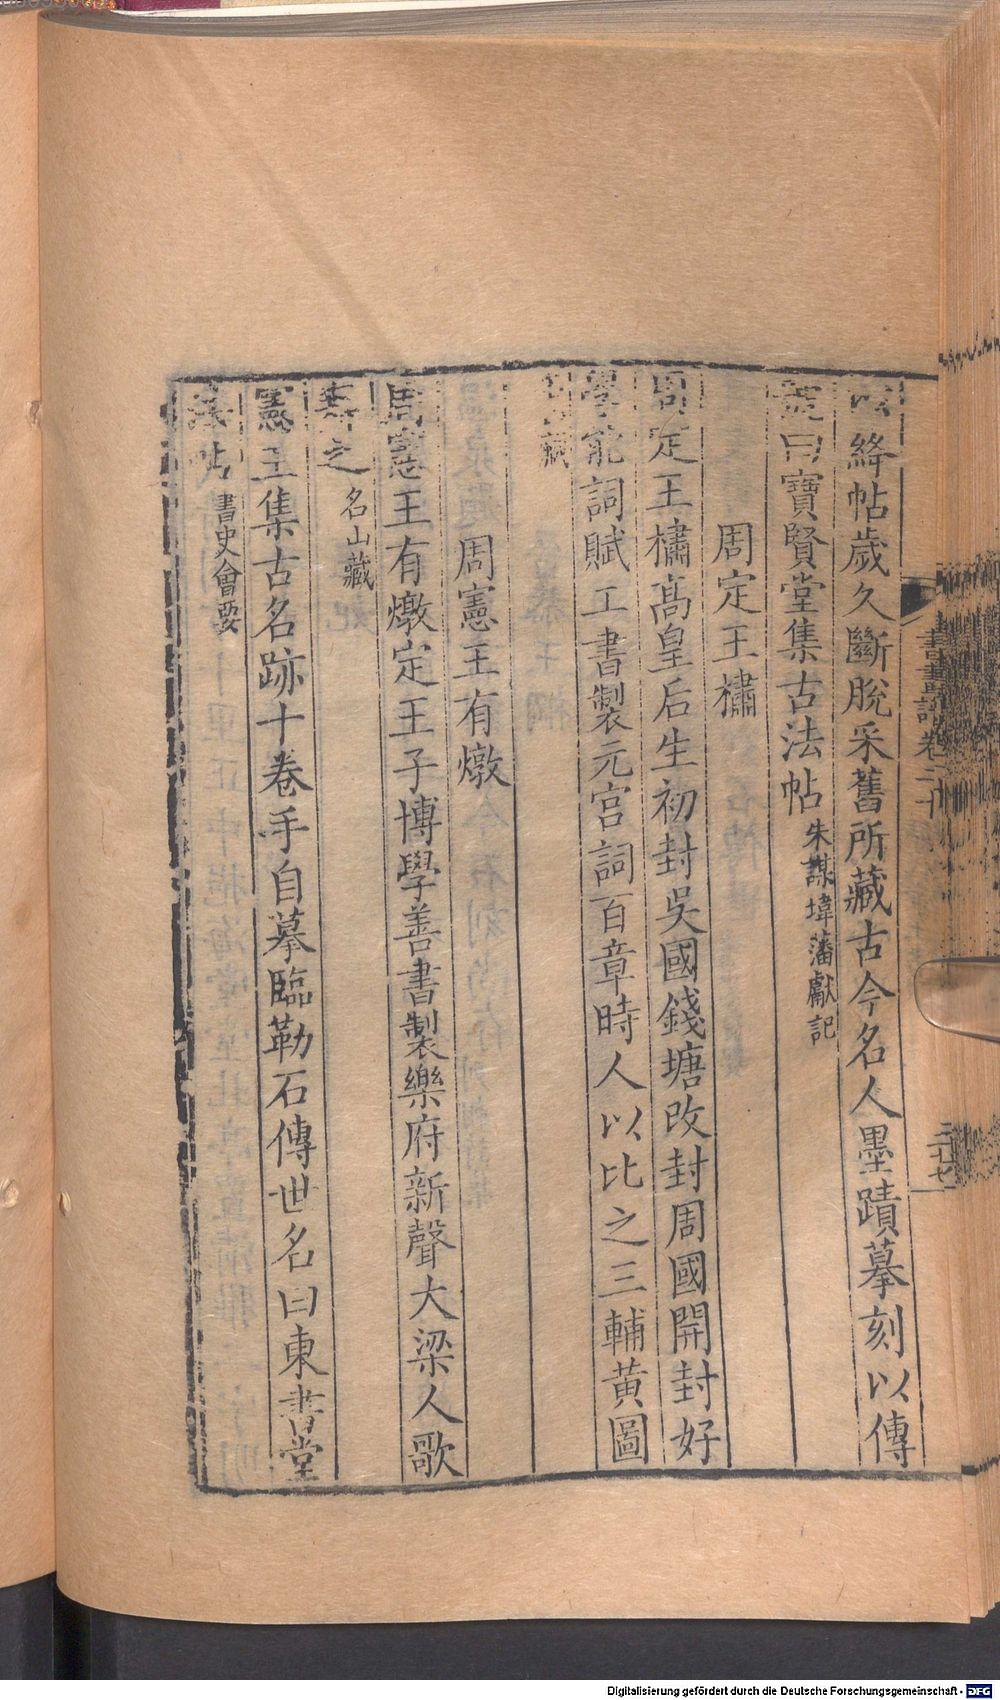 絳帖歲久斷脫采舊所藏古今名人墨蹟摹刻以傳
曰寶賢堂集古法帖 朱謀㙔藩獻記
周定王橚
周定王橚高皇后生初封吳國錢塘改封周國開封好
學能詞賦工書製元宫詞百章時人以比之三輔黄圖
藏
周憲王有燉
周憲王有燉定王子博學善書製樂府新聲大梁人歌
之 名山藏
憲王集古名跡十卷手自摹臨勒石傳世名曰東書堂
法帖 書史會要
書畫譜卷二十
Digitalisierung gefördert durch die Deutsche Forschungsgemeinschaft - DFG